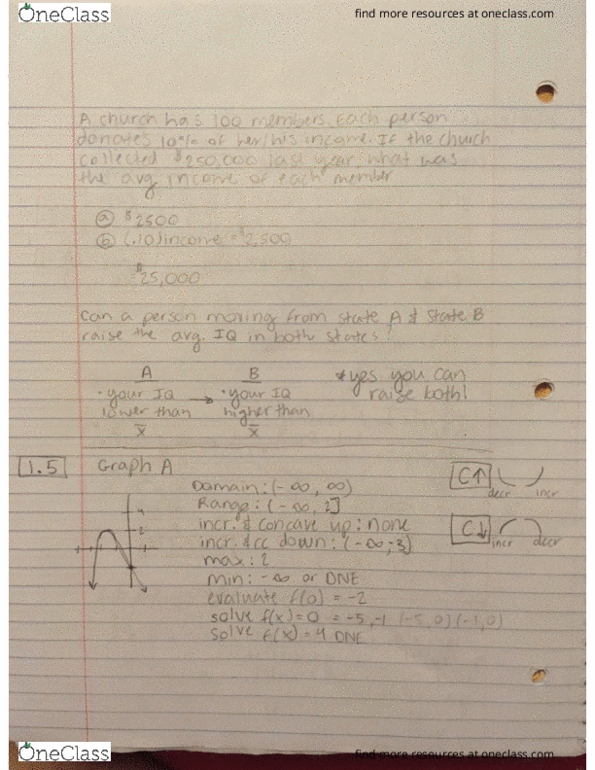 OneClass
find more resources at oneclass.com
A church has 100 members. Each person
donates 10% of her/his income. If the church
collected $250,000 last year what was
the avg income of each member
a $2500
b (.10)income = $2,500
$25,000
can a person moving from state A & state B
raise the avg. IQ in both states?
A B
• your IQ → • your IQ * yes you can
lower than higher than raise both!
x̄ x̄
1.5 Graph A
Domain: (-∞, ∞) C↑
decr incr
Range: (-∞, 2]
incr. & concave up: none C↓
incr decr
incr. & cc down: (-∞, -3)
max: 2
min: -∞ or DNE
evaluate f(0) = -2
solve f(x)=0 = -5, -1 (-5, 0) (-1, 0)
solve f(x) = 4 DNE
4
2
OneClass
find more resources at oneclass.com